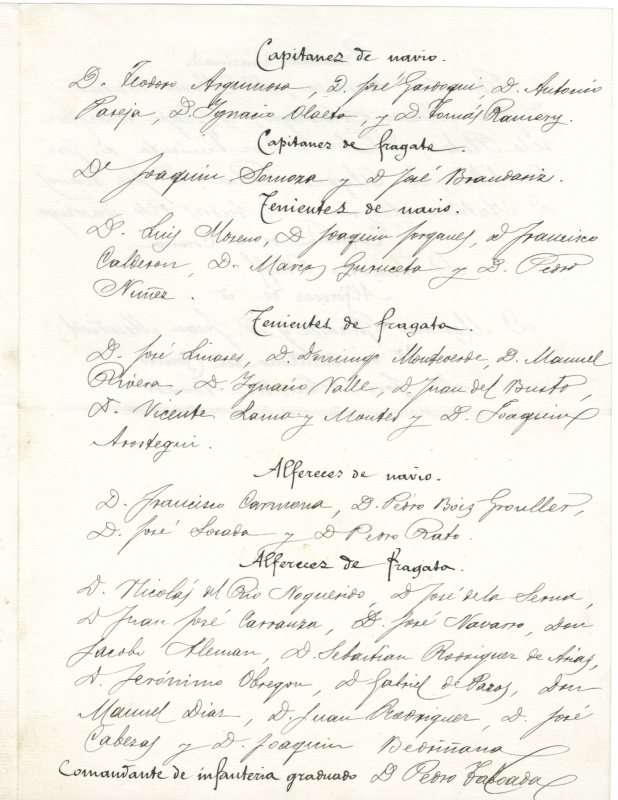 Capitanes de navio.
D. Teodoro Argumosa, D. José Gardoqui, D. Antonio
Pareja, D. Ignacio Olaeta, y D. Tomás Ramery.
Capitanes de fragata.
Dn Joaquin Somoza y D José Brandariz.
Tenientes de navio.
D. Luis Moreno, D Joaquin Jorganes, D Francisco
Calderon, D. Marcos Guruceta y D. Pedro
Nuñez.
Tenientes de fragata.
D. José Linares, D. Domingo Monteverde, D. Manuel
Rivera, D. Ignacio Valle, D. Juan del Busto,
D. Vicente Lama y Montes y D. Joaquin
Arostegui.
Alfereces de navio.
D. Francisco Carmona, D. Pedro Bois Grouller,
D. José Losada y D Pedro Rato.
Alfereces de fragata.
D. Nicolás del Rio Noguerido, D José de la Serna,
D Juan José Carranza, D. José Navarro, Don
Jacobo Aleman, D. Sebastian Rodriguez de Arias,
D. Jerónimo Obregon, D Gabriel de Pazos, Don
Manuel Diaz, D. Juan Rodriguez, D. José
Cabezas y D. Joaquin Bedriñana
Comandante de infanteria graduado D Pedro Taboada